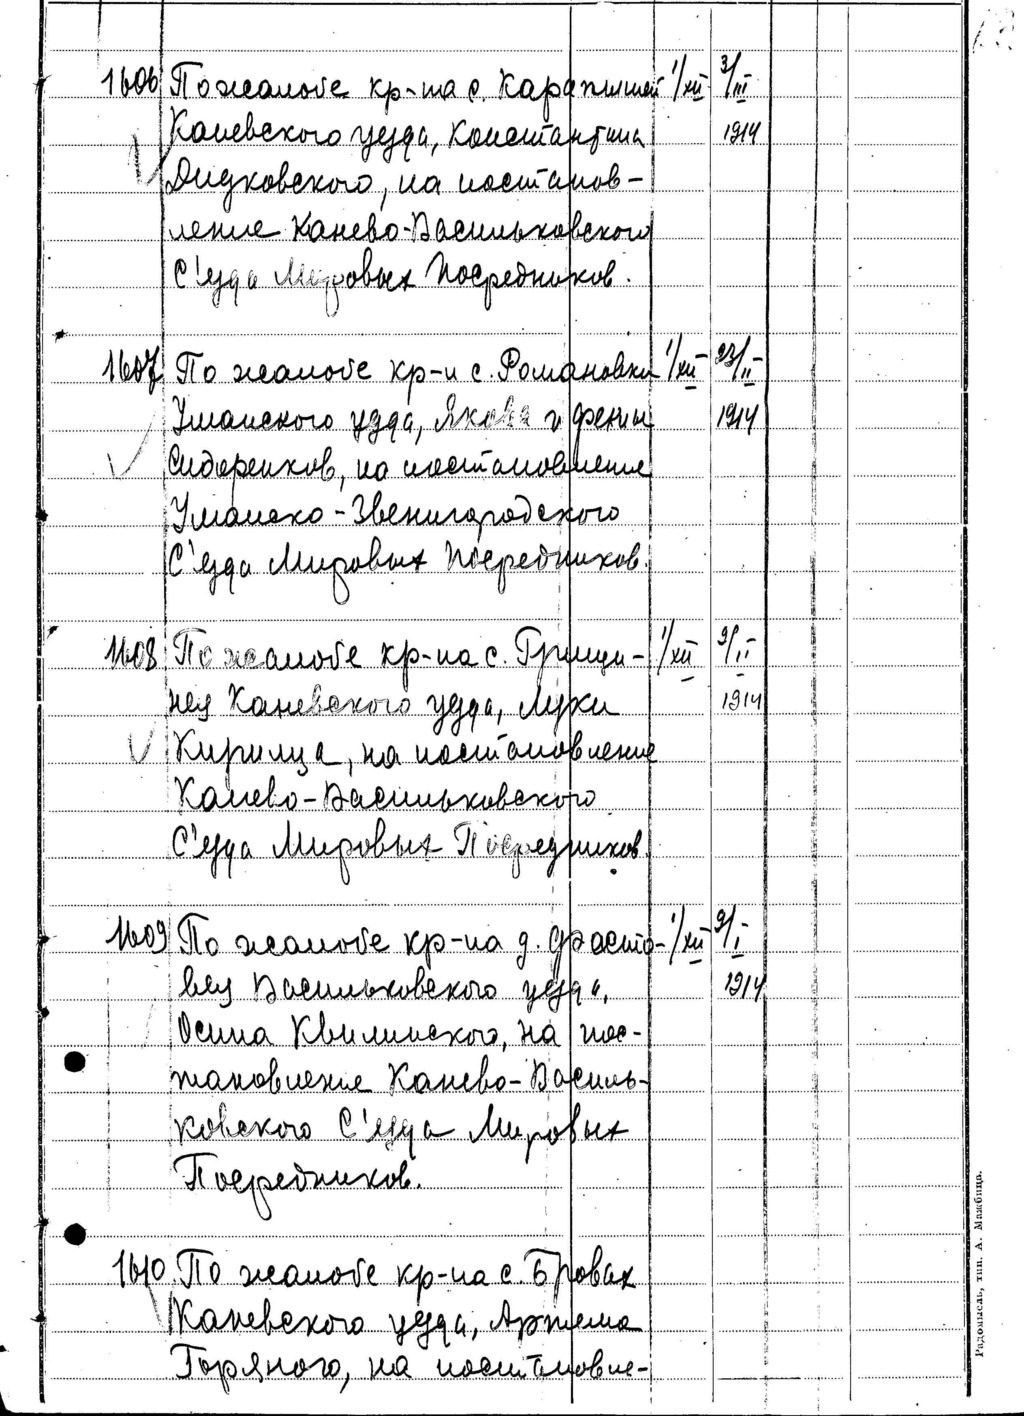 1606 По жалобе кр-на с. Карапышей 1/XII 3/III
Каневского уезда, Константина 1914
Дидковского, на постанов-
ление Канево-Васильковского
С'езда Мировых Посредников.
1607 По жалобе кр-н с. Романовки 1/XII 23/II
Уманского уезда, Якова и Фении 1914
Сидоренков, на постановление
Уманско-Звенигородского
С'езда Мировых Посредников.
1608 По жалобе кр-на с. Грищи- 1/XII 9/II
нец Каневского уезда, Луки 1914
Кирилца, на постановление
Канево-Васильковского
С'езда Мировых Посредников.
1609 По жалобе кр-на д. Фасто- 1/XII 9/I
вец Васильковского уезда, 1914
Осипа Квилинского, на пос-
тановление Канево-Василь-
ковского С'езда Мировых
Посредников.
1610 По жалобе кр-на с. Бровах
Каневского уезда, Артема
Горяного, на постановле-
Радомысль, тип. А. Мажбица.